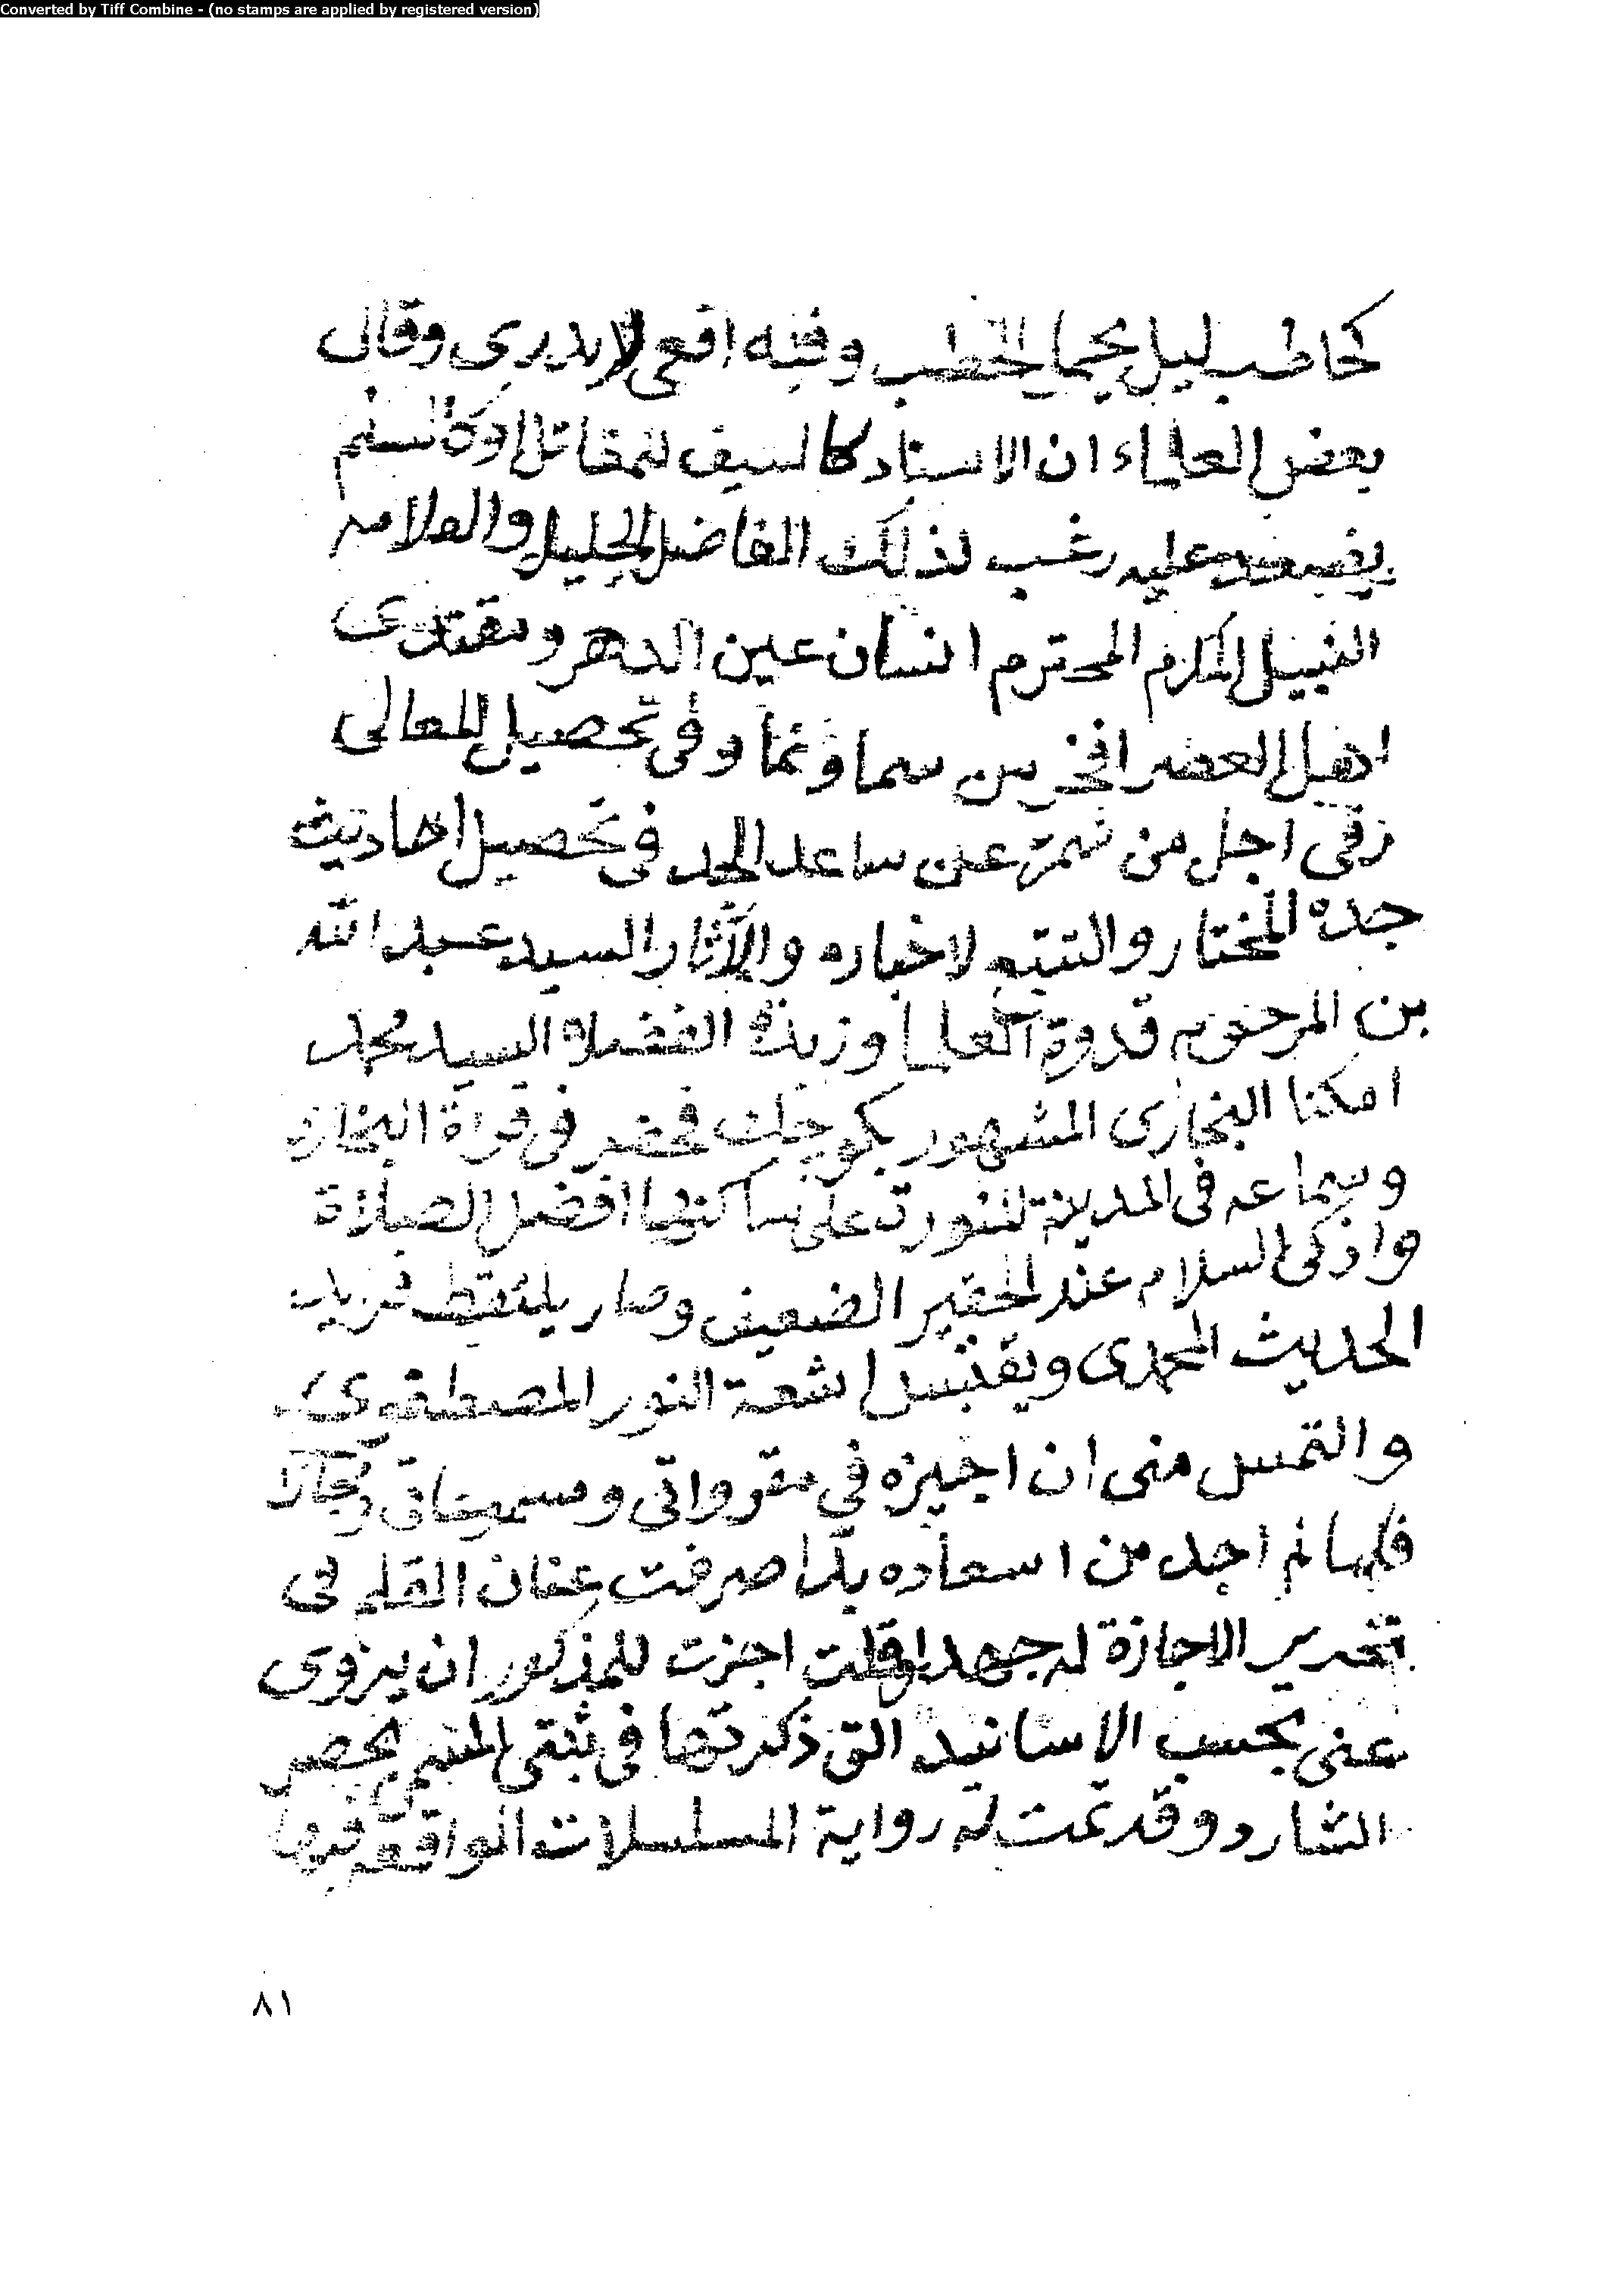 Converted by Tiff Combine - (no stamps are applied by registered version)
كحاطب ليل يحمل الحطب وفيه افعى لا يدرى وقال
بعض العلماء ان الاسناد كالسيف للمقاتل او كالسلم
يصعد عليه رغب لذلك الفاضل الجليل والعلامه
النبيل المكرم المحترم انسان عين الدهر ومقتدى
اهل العصر افخر من سما ونما وفى تحصيل المعالى
رقى اجل من شمر عن ساعد الجد فى تحصيل احاديث
جده المختار والتتبع لاخباره والآثار السيد عبد الله
بن المرحوم قدوة العلما وزبدة الفضلاء السيد محمد
امكنا البخارى المشهور بكوجك فحضر فى قرآة البخارى
وسماعه فى المدينة المنورة على ساكنها افضل الصلاة
وازكى السلام عند الحقير الضعيف وصار يلتقط
الحديث المحمدى ويقتبس اشعة النور المصطفوى
والتمس منى ان اجيزه في مقرواتى ومسموعاتى
فلما لم اجد من اسعاده بدا صرفت عنان القلم فى
تحرير الاجازة له جهدا وقلت اجزت للمذكور ان يروى
عنى بحسب الاسانيد التى ذكرتها فى ثبتى المسمى بحصر
الشارد وقد تمت له رواية المسلسلات الواقعة فيها
٨١